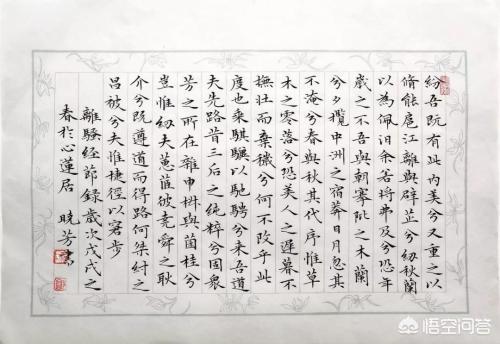 紛吾既有此內美兮又重之以
脩能扈江離與辟芷兮紉秋蘭
以為佩汨余若將弗及兮恐年
歲之不吾與朝搴阰之木蘭
兮夕攬中洲之宿莽日月忽其
不淹兮春與秋其代序惟草
木之零落兮恐美人之遲暮不
撫壯而棄穢兮何不改乎此
度也乘騏驥以馳騁兮來吾道
夫先路昔三后之純粹兮固眾
芳之所在雜申椒與菌桂兮
豈惟紉夫蕙茝彼堯舜之耿
介兮既遵道而得路何桀紂之
昌被兮夫惟捷徑以窘步
離騷經節錄歲次戊戌之
春於心蓮居 曉芳書
悟空问答